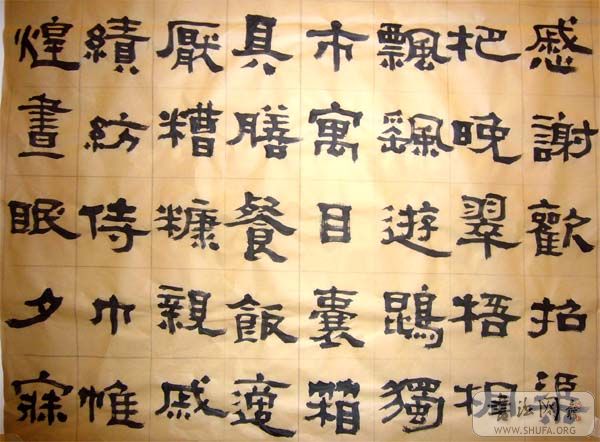 慼謝歡招渠
杷晚翠梧桐
飄颻遊鵾獨
市寓目囊箱
具膳餐飯適
厭糟糠親戚
績紡侍巾帷
煌晝眠夕寐
书法网
WWW.SHUFA.ORG